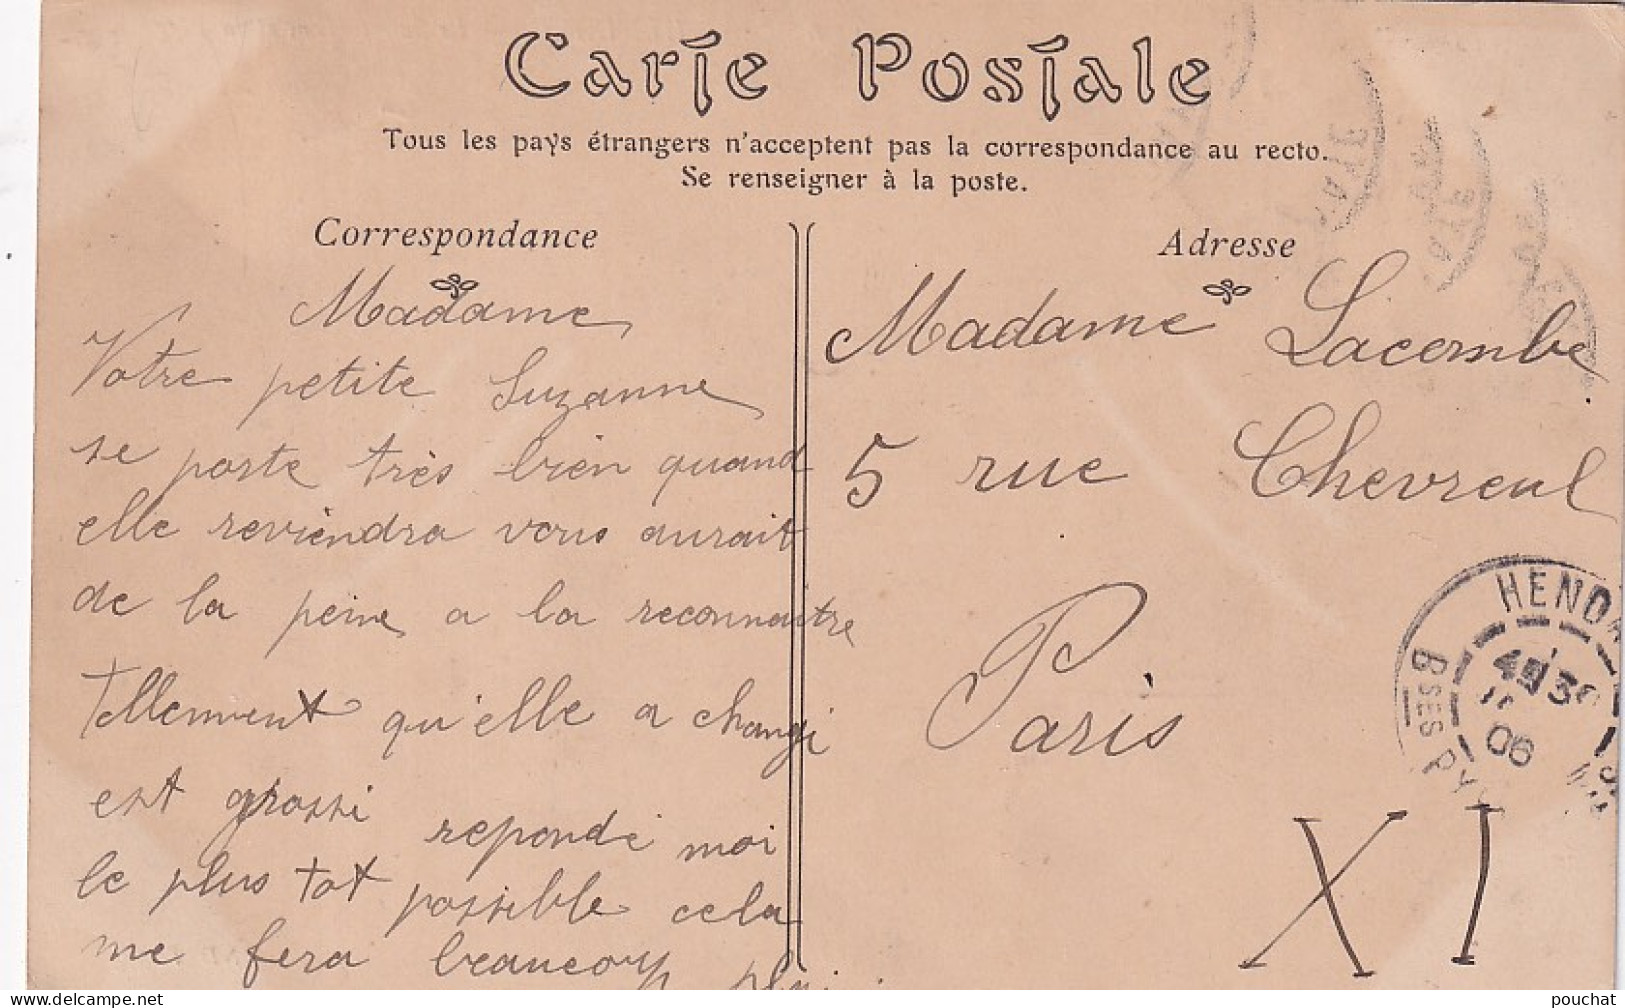 Carte Postale
Tous les pays étrangers n'acceptent pas la correspondance au recto.
Se renseigner à la poste.
Correspondance
Madame
Votre petite Suzanne
se porte très bien quand
elle reviendra vous aurait
de la peine a la reconnaitre
tellement qu'elle a changi
est grossi repondé moi
le plus tot possible cela
me fera beaucoup
Adresse
Madame Lacombe
5 rue Chevreul
Paris
XI
HENDA
BSES PY
4 30
06
pouchat